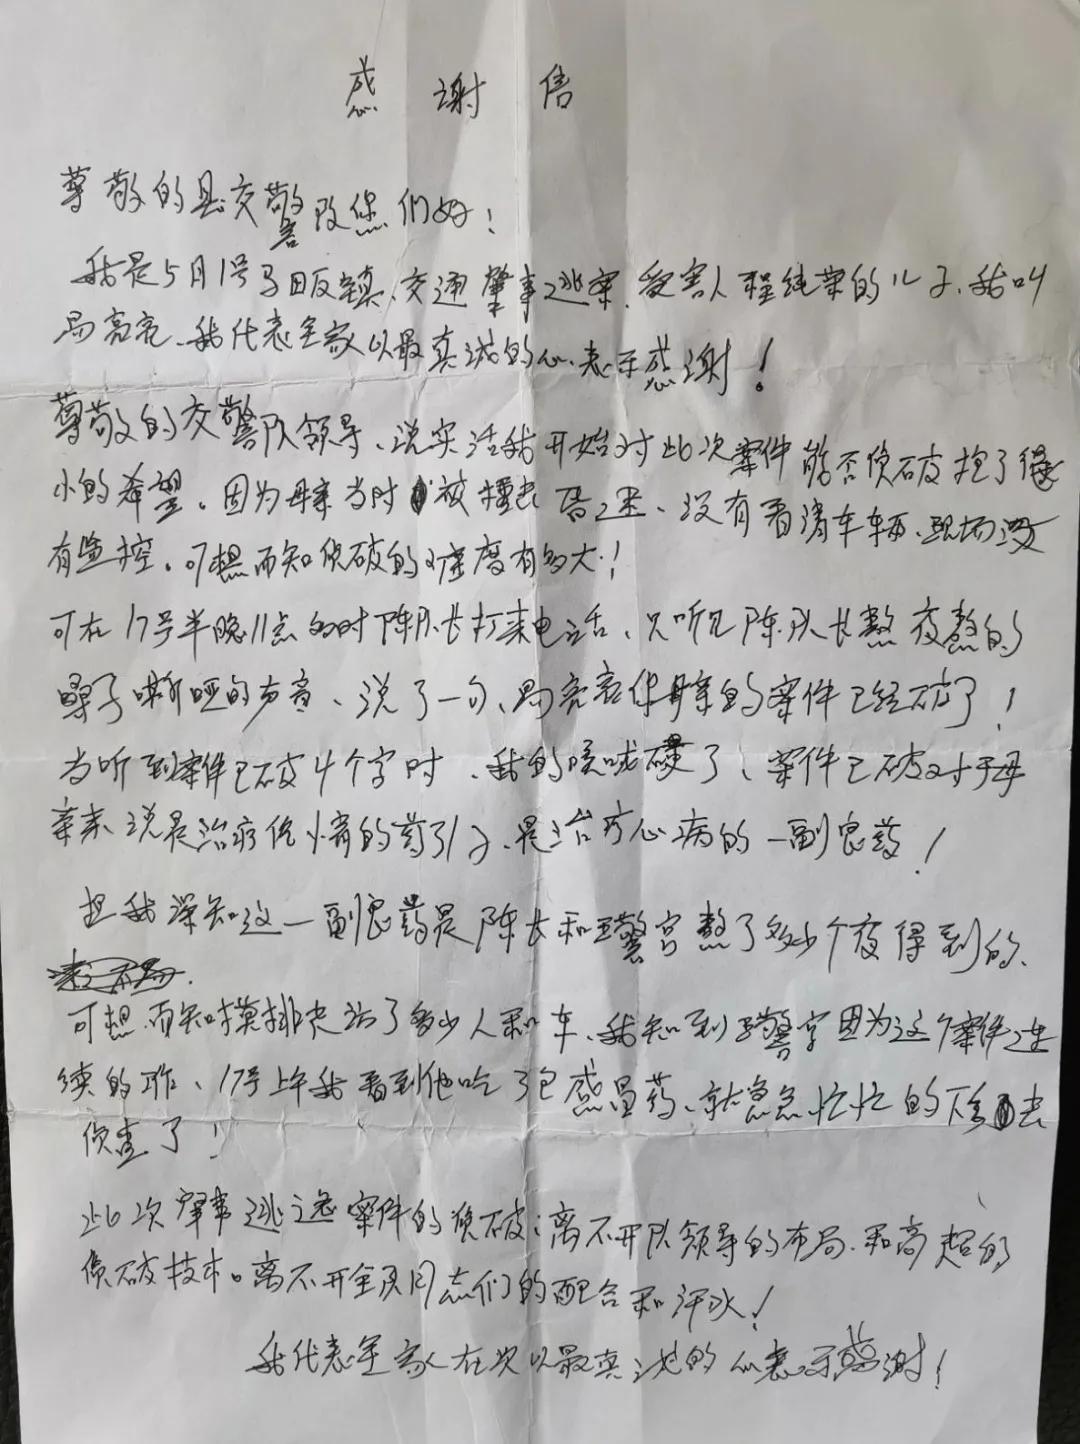 感谢信
尊敬的县交警队您们好！
我是5月1号马田畈镇、交通肇事逃案、受害人程纯荣的儿子、我叫
周亮亮、我代表全家以最真诚的心、表示感谢！
尊敬的交警队领导、说实话我开始对此次案件能否侦破抱了很
小的希望。因为母亲当时被撞击昏迷、没有看清车辆、现场没
有监控。可想而知侦破的难度有多大！
可在17号半晚11点的时陈队长打来电话、只听见陈队长熬夜熬的
嗓子嘶哑的声音、说了一句、周亮亮你母亲的案件已经破了！
当听到案件已破4个字时、我的喉咙硬了、案件已破对于母
亲来说是治疗伤情的药引子、是治疗心病的一副良药！
但我深知这一副良药是陈长和王警官熬了多少个夜得到的、
可想而知摸排走访了多少人和车、我知到王警官因为这个案件连
续的工作、17号上午我看到他吃了包感冒药、就急急忙忙的下去
侦查了！
此次肇事逃逸案件的侦破；离不开队领导的布局、和高超的
侦破技术。离不开全队同志们的配合和汗水！
我代表全家人在次以最真诚的心表示感谢！